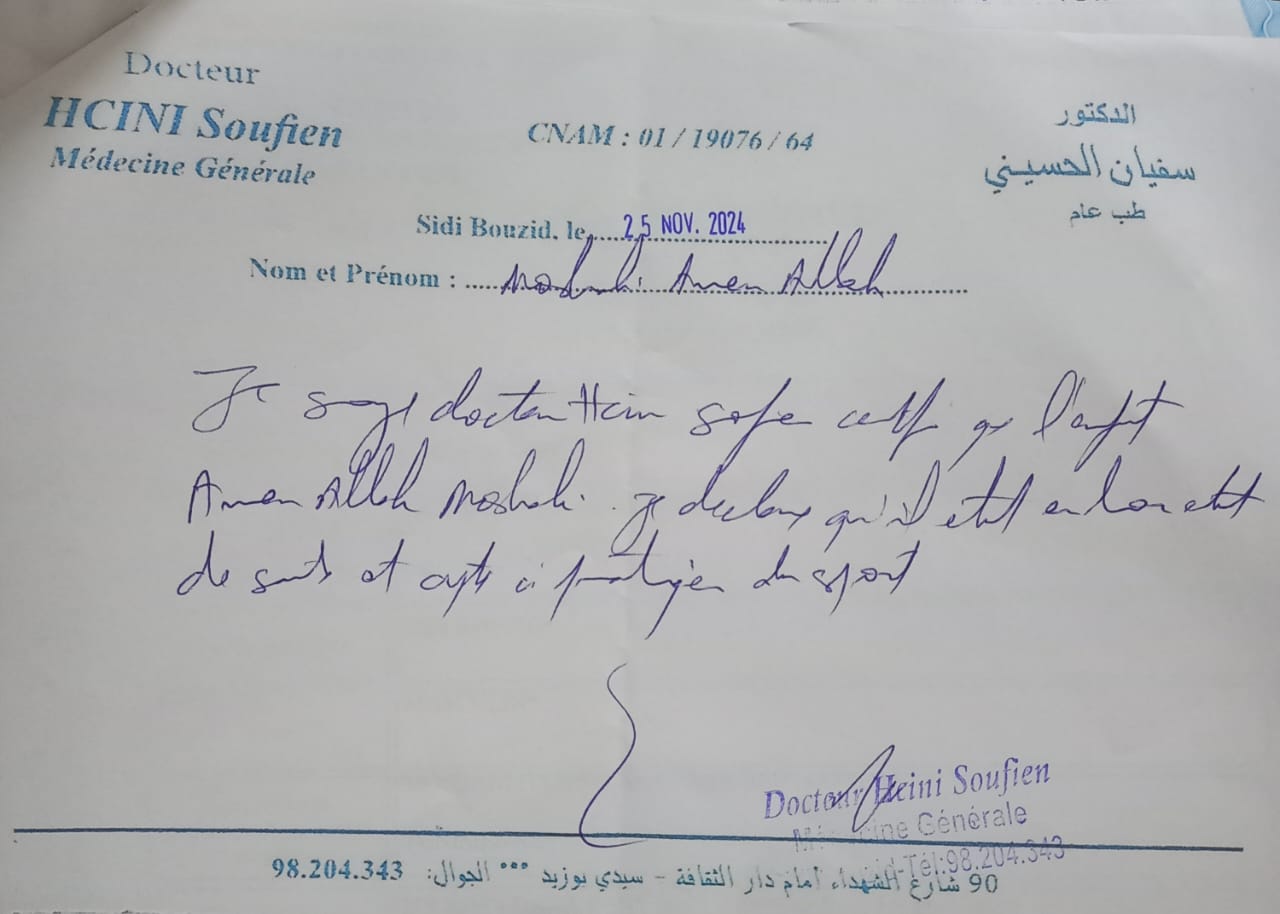 Docteur
HCINI Soufien
Médecine Générale
CNAM : 01 / 19076 / 64
الدكتور
سفيان الحسيني
طب عام
Sidi Bouzid, le 25 NOV. 2024
Nom et Prénom : Amen Allah
Je docteur Hcini que l'enfant
Amen Allah je qu'il etat en bon etat
de et à du sport
Docteur Hcini Soufien
Médecine Générale
Tél:98.204.343
90 شارع الشهداء أمام دار الثقافة - سيدي بوزيد *** الجوال: 98.204.343